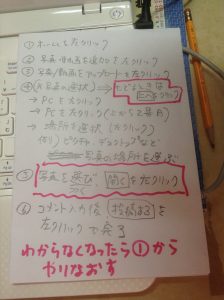 ① ホームを左クリック
② 写真・動画を追加を左クリック
③ 写真/動画をアップロードを左クリック
④ (写真の選択)
→ PCを左クリック
→ PCを左クリック
→ 場所を選択 (左クリック)
例) ピクチャ、デスクトップなど
写真の場所を選ぶ
⑤ 写真を選び、開くを左クリック
⑥ コメント入力後 投稿するを
左クリックで完了
わからなくなったら①から
やりなおす